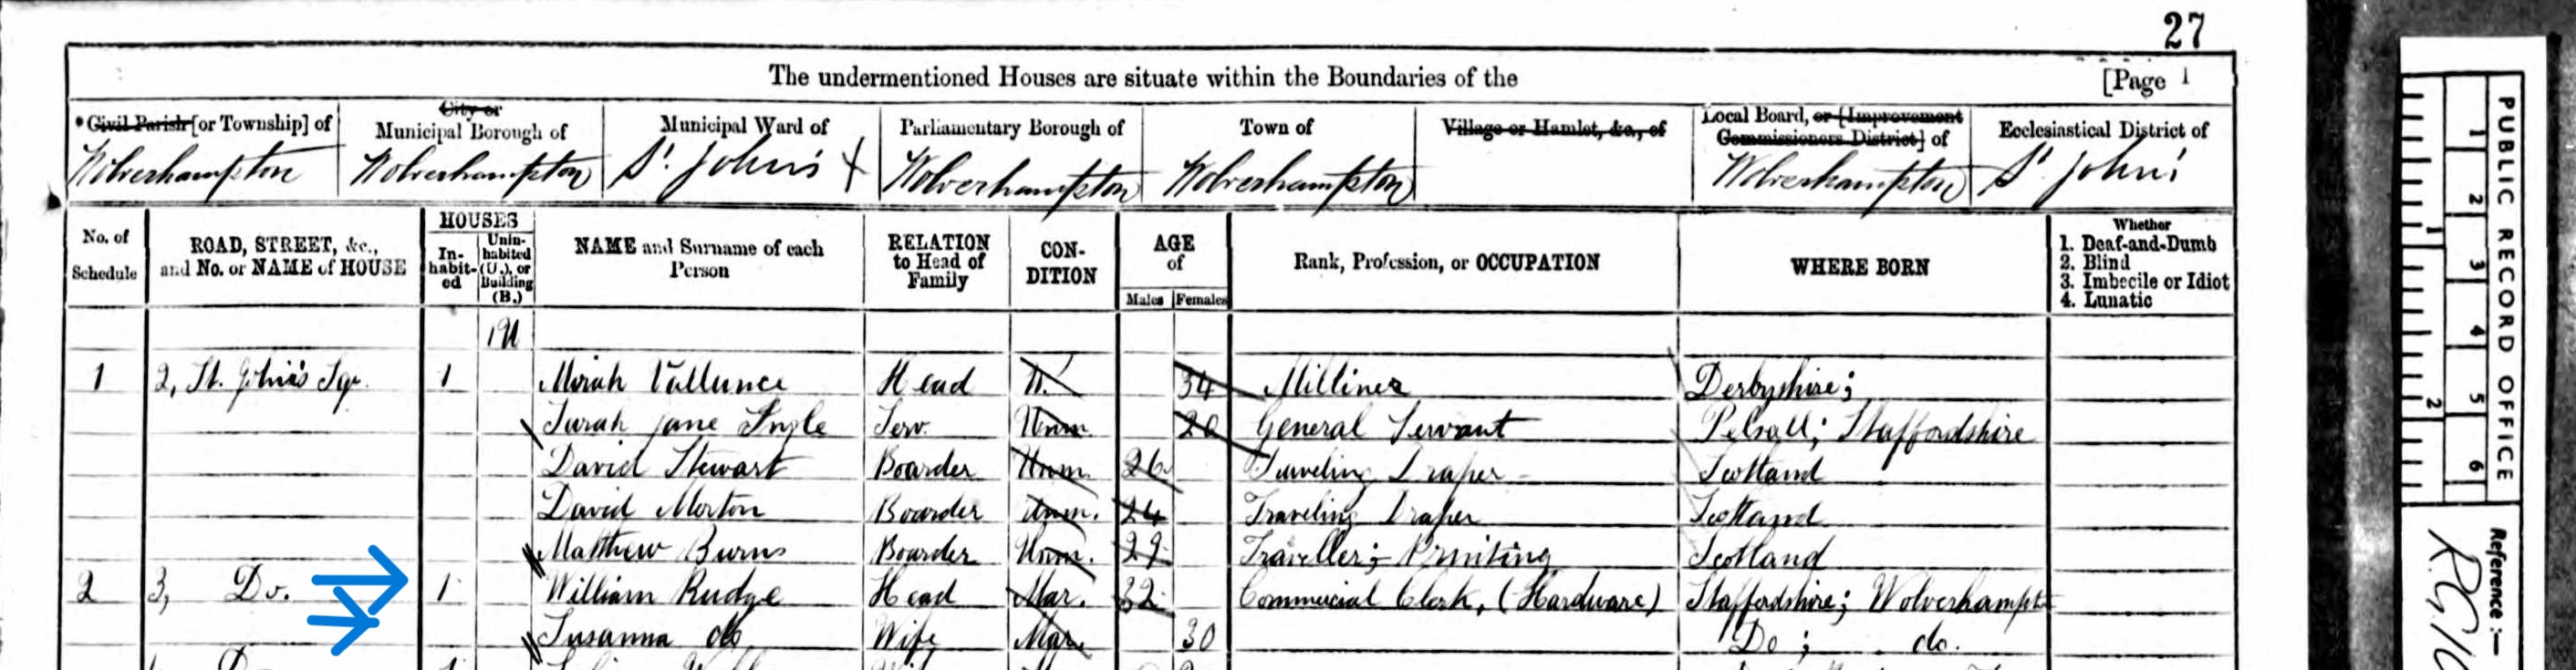 27
The undermentioned Houses are situate within the Boundaries of the [Page 1
*Civil Parish [or Township] of City or Municipal Borough of Municipal Ward of Parliamentary Borough of Town of Village or Hamlet, &c., of Local Board, or [Improvement Commissioners District] of Ecclesiastical District of
Wolverhampton Wolverhampton St. John's Wolverhampton Wolverhampton Wolverhampton St. John's
No. of Schedule ROAD, STREET, &c., and No. or NAME of HOUSE HOUSES In-habit-ed Unin-habited (U.), or Building (B.) NAME and Surname of each Person RELATION to Head of Family CON-DITION AGE of Males Females Rank, Profession, or OCCUPATION WHERE BORN Whether 1. Deaf-and-Dumb 2. Blind 3. Imbecile or Idiot 4. Lunatic
1 2, St. John's Sqr. 1 Vallance Head 34 Milliner Derbyshire;
Sarah Jane Serv. Unm. 20 General Servant Pelsall; Staffordshire
David Stewart Boarder Unm. 26 Traveling Draper Scotland
David Morton Boarder Unm. 24 Traveling Draper Scotland
Matthew Burns Boarder Unm. 29 Traveller; Printing Scotland
2 3, Do. 1 William Rudge Head Mar. 32 Commercial Clerk, (Hardware) Staffordshire; Wolverhampt
Susanna do Wife Mar. 30 Do; do.
PUBLIC RECORD OFFICE
1 2 3 4 5 6
1 2
Reference :—
RG 10